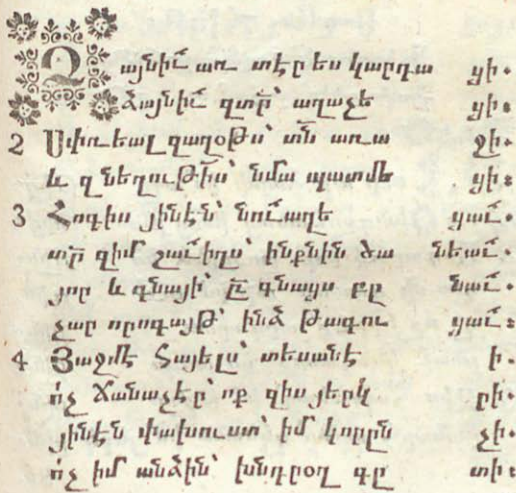 Ձայնիւ առ տէր ես կարդա ցի.
Ձայնիւ զտր̃՝ աղաչե ցի.
2 Սփռեալ զաղօթս՝ տն̃ առա ջի.
և զնեղութի̃ս՝ նմա պատմե ցի։
3 Հոգիս յինէն՝ նուաղե ցաւ.
տր̃ զիմ շաւիղս՝ ինքնին ծա նեաւ.
յոր և գնայի՝ գնայս քը նաւ.
չար որոգայթ՝ ինձ թագու ցաւ։
4 Յաջմէ հայելս՝ տեսանէ ի.
ո՛չ ճանաչէր՝ ոք զիս յերկ րի.
յինէն փախուստ՝ իմ կորըն չի.
ո՛չ իմ անձին՝ խնդրօղ գը տի։